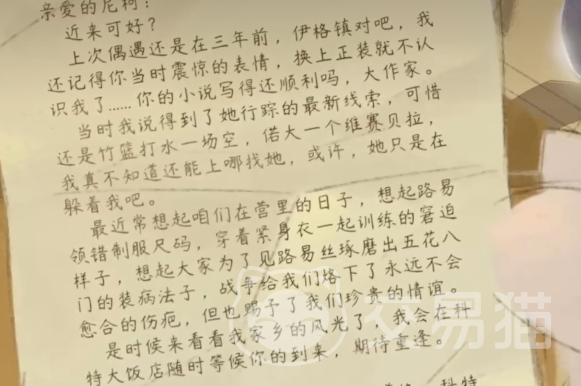 亲爱的尼柯：
近来可好？
上次偶遇还是在三年前，伊格镇对吧，我
还记得你当时震惊的表情，换上正装就不认
识我了……你的小说写得还顺利吗，大作家。
当时我说得到了她行踪的最新线索，可惜
还是竹篮打水一场空，偌大一个维赛贝拉，
我真不知道还能上哪找她，或许，她只是在
躲着我吧。
最近常想起咱们在营里的日子，想起路易
领错制服尺码，穿着紧身衣一起训练的窘迫
样子，想起大家为了见路易丝琢磨出五花八
门的装病法子，战争给我们烙下了永远不会
愈合的伤疤，但也赐予了我们珍贵的情谊。
是时候来看看我家乡的风光了，我会在科
特大饭店随时等候你的到来，期待重逢。
科特
易猫